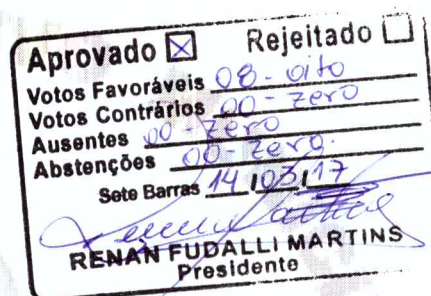 Aprovado ☒ Rejeitado ☐
Votos Favoráveis 08 - oito
Votos Contrários 00 - zero
Ausentes 00 - zero
Abstenções 00 - zero.
Sete Barras 14/03/17
RENAN FUDALLI MARTINS
Presidente